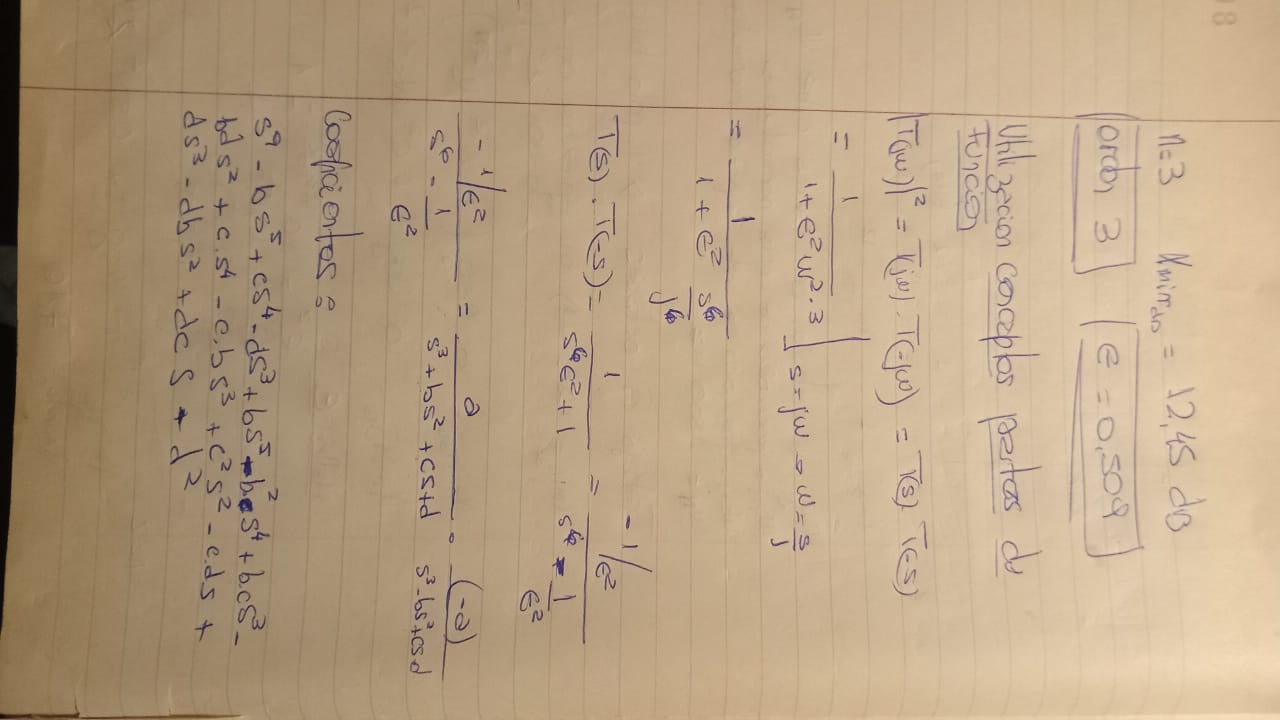 n=3 αmin dB = 12,45 dB
orden 3 | ε = 0,509
Utilizacion conceptos partes de
función
|T(jω)|² = T(jω) . T(-jω) = T(s) T(-s)
= 1 / (1 + ε² ω^2.3) | s=jω → ω = s/j
= 1 / (1 + ε² s⁶/j⁶)
T(s) . T(-s) = 1 / (s⁶ε² + 1) = -1/ε² / (s⁶ - 1/ε²)
-1/ε² / (s⁶ - 1/ε²) = a / (s³+bs²+cs+d) . (-a) / (s³-bs²+cs-d)
Coeficientes :
s⁹ - bs⁵ + cs⁴ - ds³ + bs⁵ - b²s⁴ + b.cs³ -
bds² + c.s⁴ - c.bs³ + c²s² - c.ds +
ds³ - db s² + dc s - d²